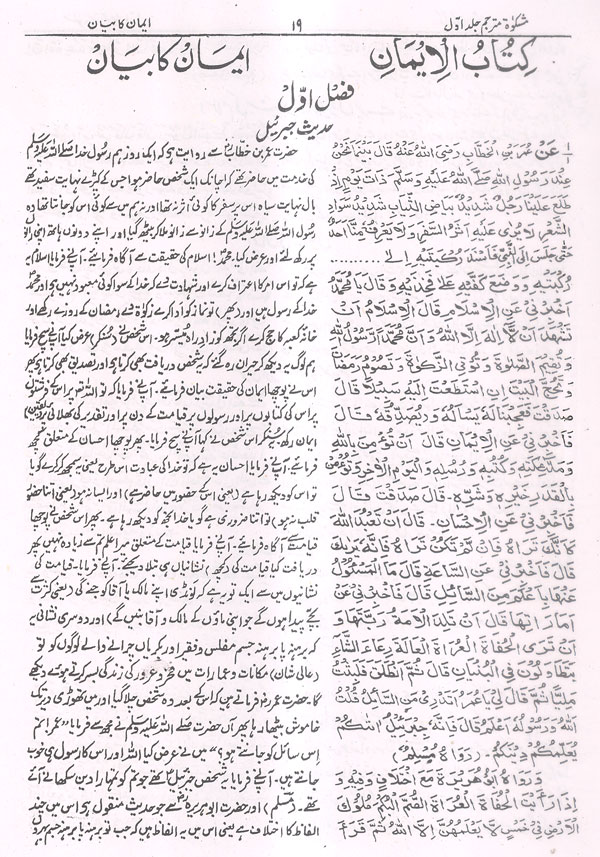 مشکوٰۃ مترجم جلد اوّل
۱۹
ایمان کا بیان
کِتَابُ الْاِیْمَانِ
ایمان کا بیان
فصل اوّل
حدیث جبرئیل
۱ عَنْ عُمَرَ بْنِ الْخَطَّابِ رَضِیَ اللهُ عَنْهُ قَالَ بَیْنَمَا نَحْنُ
عِنْدَ رَسُوْلِ اللهِ صَلَّے اللهُ عَلَیْهِ وَسَلَّمَ ذَاتَ یَوْمٍ اِذْ
طَلَعَ عَلَیْنَا رَجُلٌ شَدِیْدُ بَیَاضِ الثِّیَابِ شَدِیْدُ سَوَادِ
الشَّعْرِ لَا یُرٰی عَلَیْهِ اَثَرُ السَّفَرِ وَلَا یَعْرِفُهٗ مِنَّا اَحَدٌ
حَتّٰی جَلَسَ اِلَی النَّبِیِّ فَاَسْنَدَ رُکْبَتَیْهِ اِلٰے
رُکْبَتَیْهِ وَوَضَعَ کَفَّیْهِ عَلٰی فَخِذَیْهِ وَقَالَ یَا مُحَمَّدُ
اَخْبِرْنِیْ عَنِ الْاِسْلَامِ قَالَ الْاِسْلَامُ اَنْ
تَشْهَدَ اَنْ لَّا اِلٰهَ اِلَّا اللهُ وَاَنَّ مُحَمَّدًا رَّسُوْلُ اللهِ
وَتُقِیْمَ الصَّلٰوةَ وَتُؤْتِیَ الزَّکٰوةَ وَتَصُوْمَ رَمَضَانَ
وَتَحُجَّ الْبَیْتَ اِنِ اسْتَطَعْتَ اِلَیْهِ سَبِیْلًا قَالَ
صَدَقْتَ فَعَجِبْنَا لَهٗ یَسْأَلُهٗ وَیُصَدِّقُهٗ قَالَ
فَاَخْبِرْنِیْ عَنِ الْاِیْمَانِ قَالَ اَنْ تُؤْمِنَ بِاللهِ
وَمَلٰئِکَتِهٖ وَکُتُبِهٖ وَرُسُلِهٖ وَالْیَوْمِ الْاٰخِرِ وَتُؤْمِنَ
بِالْقَدْرِ خَیْرِهٖ وَشَرِّهٖ۔ قَالَ صَدَقْتَ قَالَ
فَاَخْبِرْنِیْ عَنِ الْاِحْسَانِ۔ قَالَ اَنْ تَعْبُدَ اللهَ
کَاَنَّكَ تَرَاهُ فَاِنْ لَّمْ تَکُنْ تَرَاهُ فَاِنَّهٗ یَرَاكَ
قَالَ فَاَخْبِرْنِیْ عَنِ السَّاعَةِ قَالَ مَا الْمَسْئُوْلُ
عَنْهَا بِاَعْلَمَ مِنَ السَّائِلِ قَالَ فَاَخْبِرْنِیْ عَنْ
اَمَارَاتِهَا قَالَ اَنْ تَلِدَ الْاَمَةُ رَبَّتَهَا وَ
اَنْ تَرَی الْحُفَاةَ الْعُرَاةَ الْعَالَةَ رِعَاءَ الشَّاءِ
یَتَطَاوَلُوْنَ فِی الْبُنْیَانِ قَالَ ثُمَّ انْطَلَقَ فَلَبِثْتُ
مَلِیًّا ثُمَّ قَالَ لِیْ یَا عُمَرُ اَتَدْرِیْ مَنِ السَّائِلُ قُلْتُ
اَللهُ وَرَسُوْلُهٗ اَعْلَمُ قَالَ فَاِنَّهٗ جِبْرَئِیْلُ اَتَاکُمْ
یُعَلِّمُکُمْ دِیْنَکُمْ۔ (رَوَاهُ مُسْلِمٌ)
وَرَوَاهُ اَبُوْ هُرَیْرَةَ مَعَ اخْتِلَافٍ وَّفِیْهِ وَ
اِذَا رَأَیْتَ الْحُفَاةَ الْعُرَاةَ الصُّمَّ الْبُکْمَ مُلُوْكَ
الْاَرْضِ فِیْ خَمْسٍ لَّا یَعْلَمُهُنَّ اِلَّا اللهُ ثُمَّ قَرَأَ
حضرت عمر بن خطابؓ سے روایت ہے کہ ایک روز ہم رسول خدا صلے اللہ علیہ وسلم
کی خدمت میں حاضر تھے کہ اچانک ایک شخص حاضر ہوا جس کے کپڑے نہایت سفید تھے
بال نہایت سیاہ اس پر سفر کا کوئی اثر نہ تھا اور نہ ہم میں سے کوئی اس کو جانتا تھا وہ
رسول اللہ صلے اللہ علیہ وسلم کے زانو سے زانو ملا کر بیٹھ گیا اور اپنے دونوں ہاتھ اپنی رانوں
پر رکھ لئے اور عرض کیا۔ محمدؐ! اسلام کی حقیقت سے آگاہ فرمائیے۔ آپؐ نے فرمایا اسلام یہ
ہے کہ تو اس امر کا اعتراف کرے اور شہادت دے کہ خدا کے سوا کوئی معبود نہیں ہے اور محمدؐ
خدا کے رسول ہیں اور (پھر) تو نماز کو ادا کرے زکوٰۃ دے رمضان کے روزے رکھے اور
خانہ کعبہ کا حج کرے اگر تجھ کو زادِ راہ میسر ہو۔ اس شخص نے (سنکر) عرض کیا آپؐ نے سچ فرمایا
ہم لوگ یہ دیکھ کر حیران رہ گئے کہ یہ شخص دریافت بھی کرتا ہے اور تصدیق بھی کرتا ہے پھر
اس نے پوچھا ایمان کی حقیقت بیان فرمائیے۔ آپؐ نے فرمایا کہ تو اللہ تعالیٰ پر اس کے فرشتوں
پر اس کی کتابوں پر اور رسولوں پر قیامت کے دن پر اور تقدیر کی بھلائی برائی پر یقین و
ایمان رکھے۔ یہ سنکر اس شخص نے کہا آپؐ نے سچ فرمایا۔ پھر پوچھا احسان کے متعلق مجھے کچھ
فرمائیے۔ آپؐ نے فرمایا احسان یہ ہے کہ تو خدا کی عبادت اس طرح یعنی یہ سمجھ کر کرے گویا
تو اس کو دیکھ رہا ہے (یعنی اس کے حضور میں حاضر ہے) اور ایسا نہ ہو (یعنی اتنا حضور
قلب نہ ہو) تو اتنا ضروری ہے گویا خدا تجھ کو دیکھ رہا ہے۔ پھر اس شخص نے پوچھا
قیامت سے آگاہ فرمائیے۔ آپؐ نے فرمایا قیامت کے متعلق میرا علم تم سے زیادہ نہیں پھر
دریافت کیا قیامت کی (کچھ) نشانیاں ہی بتلا دیجئے۔ آپؐ نے فرمایا۔ قیامت کی
نشانیوں میں سے ایک تو یہ ہے کہ لونڈی اپنے مالک یا آقا کو جنے گی (یعنی کثرت سے
بچے پیدا ہوں گے جو اپنی ماؤں کے مالک و آقا بنیں گے) اور دوسری نشانی یہ ہے
کہ برہنہ پا برہنہ جسم مفلس و فقیر اور بکریاں چرانے والے لوگوں کو تو
(عالی شان) مکانات و عمارات میں فخر و غرور کی زندگی بسر کرتے ہوئے دیکھے
گا۔ حضرت عمرؓ فرماتے ہیں کہ اس کے بعد وہ شخص چلا گیا اور میں تھوڑی دیر تک
خاموش بیٹھا رہا پھر آں حضرت صلے اللہ علیہ وسلم نے مجھ سے فرمایا "عمر! تم
اس سائل کو جانتے ہو؟" میں نے عرض کیا اللہ اور اس کا رسول ہی خوب
جانتے ہیں۔ آپؐ نے فرمایا یہ شخص جبرئیلؑ تھے جو تم کو تمہارا دین سکھانے آئے
تھے۔ (مسلم) اور حضرت ابو ہریرہؓ سے جو حدیث منقول ہے اس میں چند
الفاظ کا اختلاف ہے یعنی اس میں یہ الفاظ ہیں کہ جب تو برہنہ پا برہنہ جسم بہروں